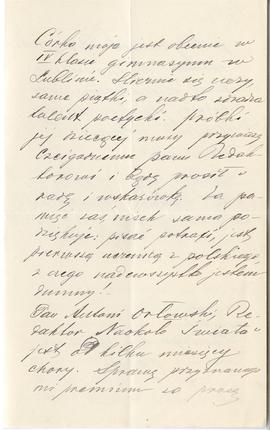 Córka moja jest obecnie w
IV klasie gimnazyum w
Lublinie. Ślicznie się uczy,
same piątki, a nadto zdradza
talent poetycki. Próbki
jej dziecięcej muzy przysyłam
Czcigodnemu panu Redak-
torowi i będę prosił o
radę i wskazówkę. Za pa-
mięć zaś niech sama po-
dziękuje: pisać potrafi, jest
pierwszą uczenicą z polskiego,
z czego nadewszystko jestem
dumny!
Pan Antoni Orłowski, Re-
daktor Naokoło Świata
jest od kilku miesięcy
chory. Sprawę przyznanego
mi premium za pracę